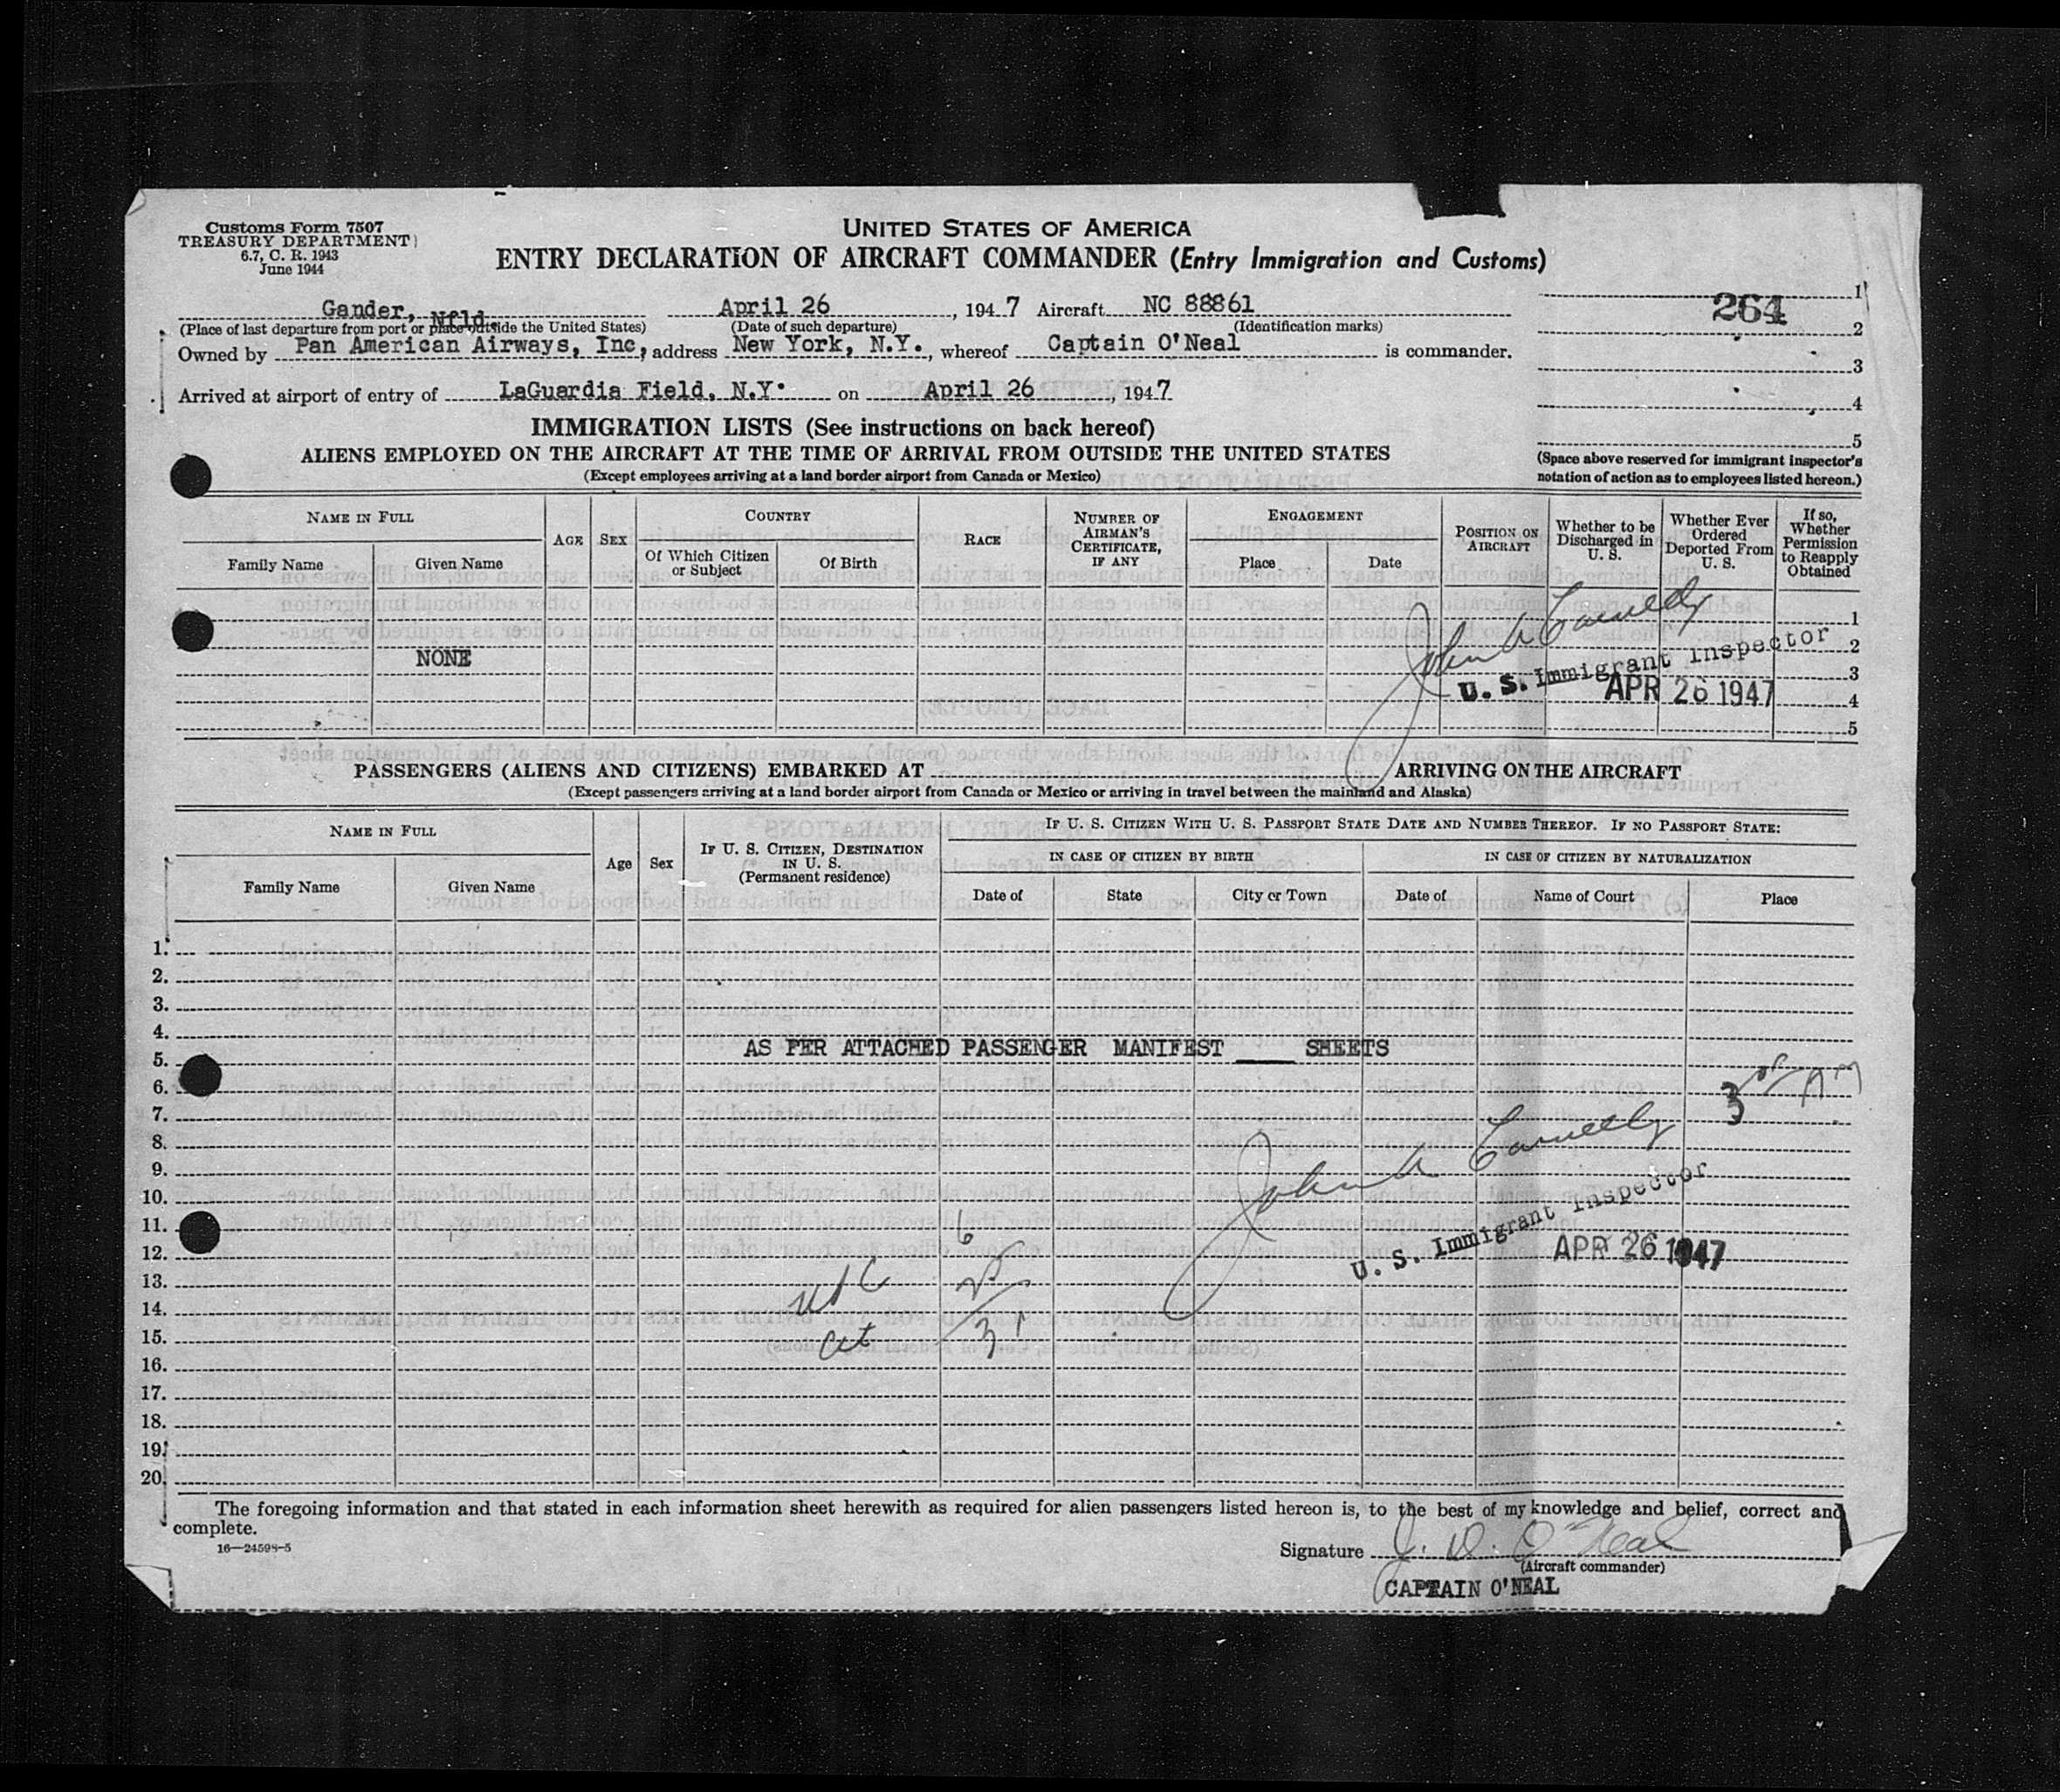 Customs Form 7507
TREASURY DEPARTMENT
6.7, C. R. 1943
June 1944
UNITED STATES OF AMERICA
ENTRY DECLARATION OF AIRCRAFT COMMANDER (Entry Immigration and Customs)
264
Gander, Nfld. April 26, 1947 Aircraft NC 88861
(Place of last departure from port or place outside the United States) (Date of such departure) (Identification marks)
Owned by Pan American Airways, Inc, address New York, N.Y., whereof Captain O'Neal is commander.
Arrived at airport of entry of LaGuardia Field, N.Y. on April 26, 1947
1
2
3
4
5
(Space above reserved for immigrant inspector's
notation of action as to employees listed hereon.)
IMMIGRATION LISTS (See instructions on back hereof)
ALIENS EMPLOYED ON THE AIRCRAFT AT THE TIME OF ARRIVAL FROM OUTSIDE THE UNITED STATES
(Except employees arriving at a land border airport from Canada or Mexico)
NAME IN FULL
Family Name Given Name
AGE SEX
COUNTRY
Of Which Citizen or Subject
Of Birth
RACE
NUMBER OF AIRMAN'S CERTIFICATE, IF ANY
ENGAGEMENT
Place Date
POSITION ON AIRCRAFT
Whether to be Discharged in U. S.
Whether Ever Ordered Deported From U. S.
If so, Whether Permission to Reapply Obtained
NONE
1
2
3
4
5
John
U. S. Immigrant Inspector
APR 26 1947
PASSENGERS (ALIENS AND CITIZENS) EMBARKED AT ARRIVING ON THE AIRCRAFT
(Except passengers arriving at a land border airport from Canada or Mexico or arriving in travel between the mainland and Alaska)
NAME IN FULL
Family Name Given Name
Age Sex
IF U. S. CITIZEN, DESTINATION
IN U. S.
(Permanent residence)
IF U. S. CITIZEN WITH U. S. PASSPORT STATE DATE AND NUMBER THEREOF. IF NO PASSPORT STATE:
IN CASE OF CITIZEN BY BIRTH IN CASE OF CITIZEN BY NATURALIZATION
Date of State City or Town Date of Name of Court Place
1.
2.
3.
4.
AS PER ATTACHED PASSENGER MANIFEST ____ SHEETS
5.
6.
7.
8.
9.
10.
11.
12.
13.
14.
15.
16.
17.
18.
19.
20.
AM
John
U. S. Immigrant Inspector
APR 26 1947
6
USC 25
31
The foregoing information and that stated in each information sheet herewith as required for alien passengers listed hereon is, to the best of my knowledge and belief, correct and
complete.
16—24598-5
Signature J. D. O'Neal
(Aircraft commander)
CAPTAIN O'NEAL